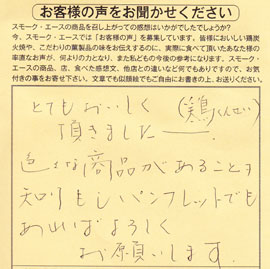 お客様の声をお聞かせください
スモーク・エースの商品を召し上がっての感想はいかがでしたでしょうか?
今、スモーク・エースでは「お客様の声」を募集しています。皆様においしい鶏炭
火焼や、こだわりの薫製品の味をお伝えするのに、実際に食べて頂いたあなた様の
率直なお声が、何よりの力となり、また私どもの今後の参考になります。スモーク・
エースの商品、店、食べた感想文、他店との違いなど何でもありですので、お気
付きの事をお寄せ下さい。文章でも似顔絵でもご自由にお書きの上、お送りください。
とてもおいしく(鶏くんせい)
頂きました
色々な商品があることも
知りもしパンフレットでも
あればよろしく
お願いします。